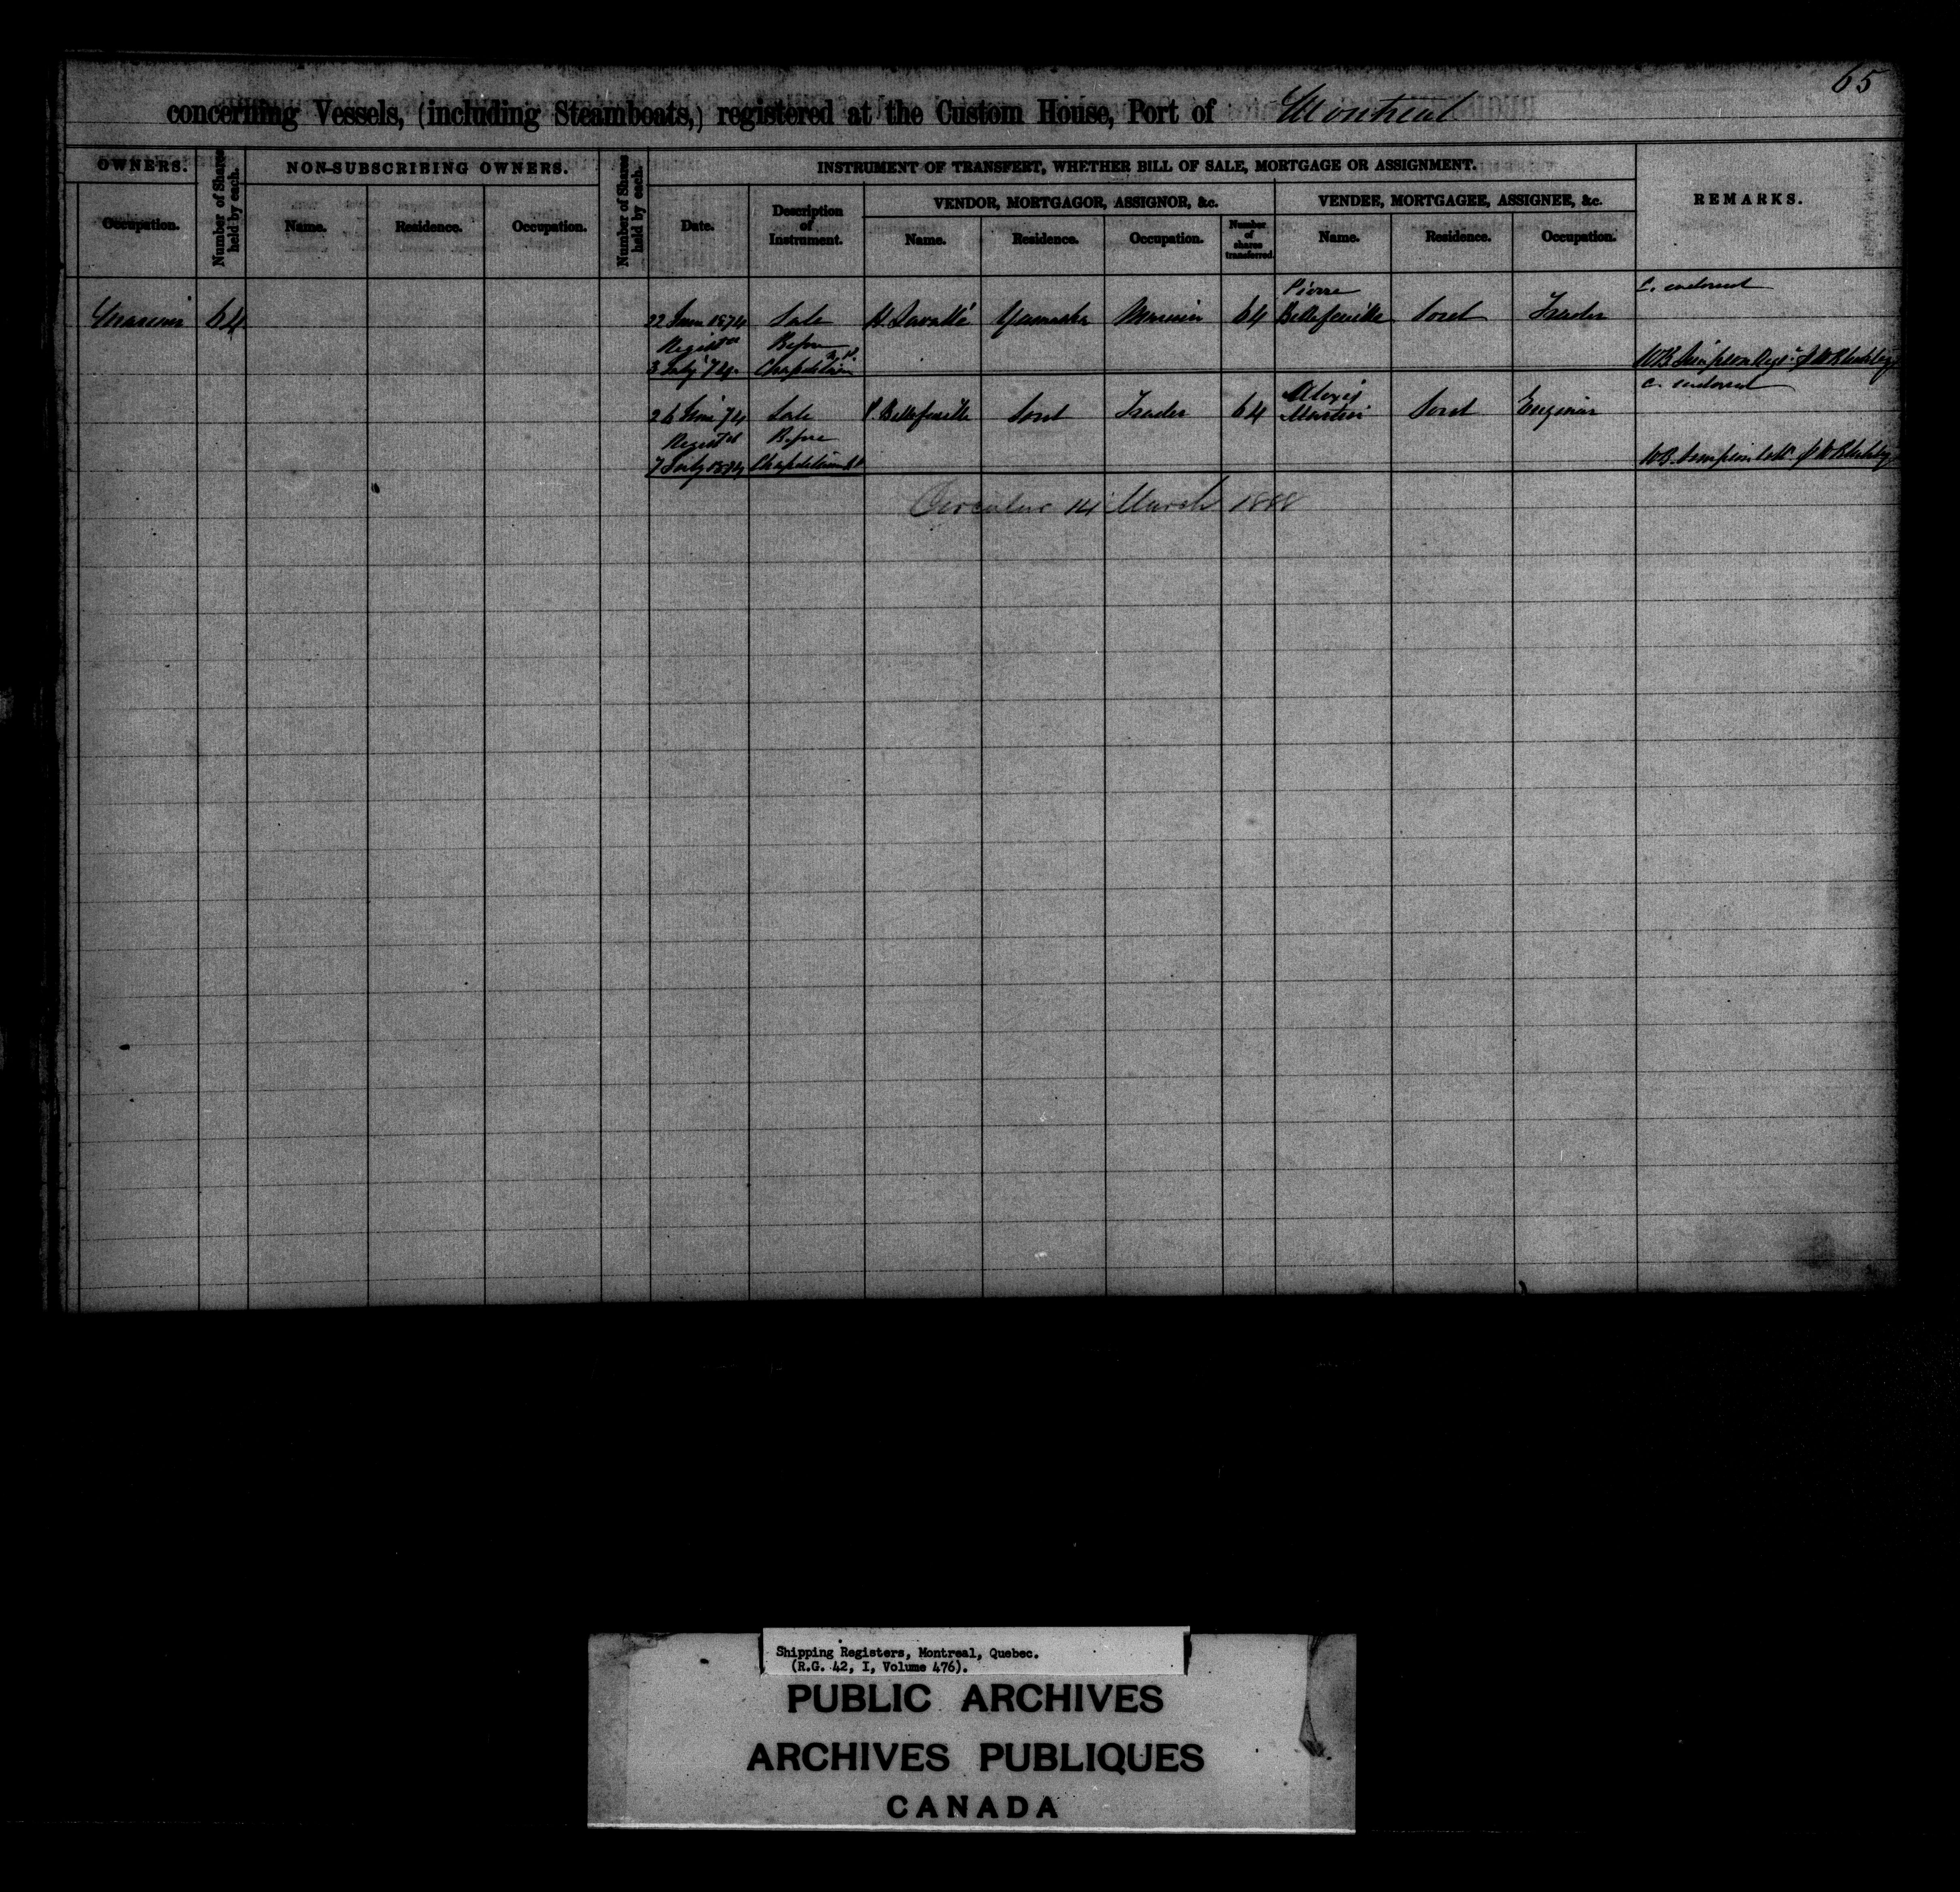 65
concerning Vessels, (including Steamboats,) registered at the Custom House, Port of Montreal
OWNERS.
Number of Shares held by each.
NON-SUBSCRIBING OWNERS.
Number of Shares held by each.
INSTRUMENT OF TRANSFERT, WHETHER BILL OF SALE, MORTGAGE OR ASSIGNMENT.
REMARKS.
Occupation.
Name. Residence. Occupation.
Date.
Description of Instrument.
VENDOR, MORTGAGOR, ASSIGNOR, &c.
VENDEE, MORTGAGEE, ASSIGNEE, &c.
Name. Residence. Occupation.
Number of shares transferred.
Name. Residence. Occupation.
Pierre
C. endorsed
64 22 June 1874 Sale H. Lavallé Yamaska Mariner 64 Bellefeuille Sorel Trader
Registd Before
3 July 74. Chapdelaine N.P.
W.B. Simpson
Alexis
C. endorsed
26 June 74 Sale P. Bellefeuille Sorel Trader 64 Martin Sorel Engineer
Registd Before
7 July 1874 Chapdelaine
W.B. Simpson
Circular 14 March 1888
Shipping Registers, Montreal, Quebec.
(R.G. 42, I, Volume 476).
PUBLIC ARCHIVES
ARCHIVES PUBLIQUES
CANADA